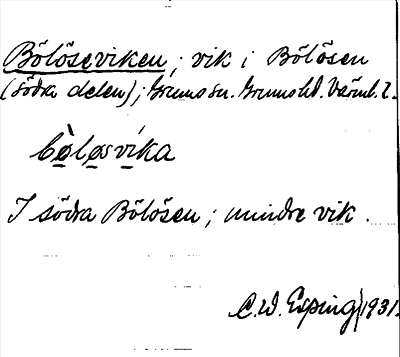 Bölöseviken, vik i Bölösen
(södra delen); Grums sn. Grums hd. Värml. l.
bòløsvíka
I södra Bölösen; mindre vik.
C.W. Esping 1931.